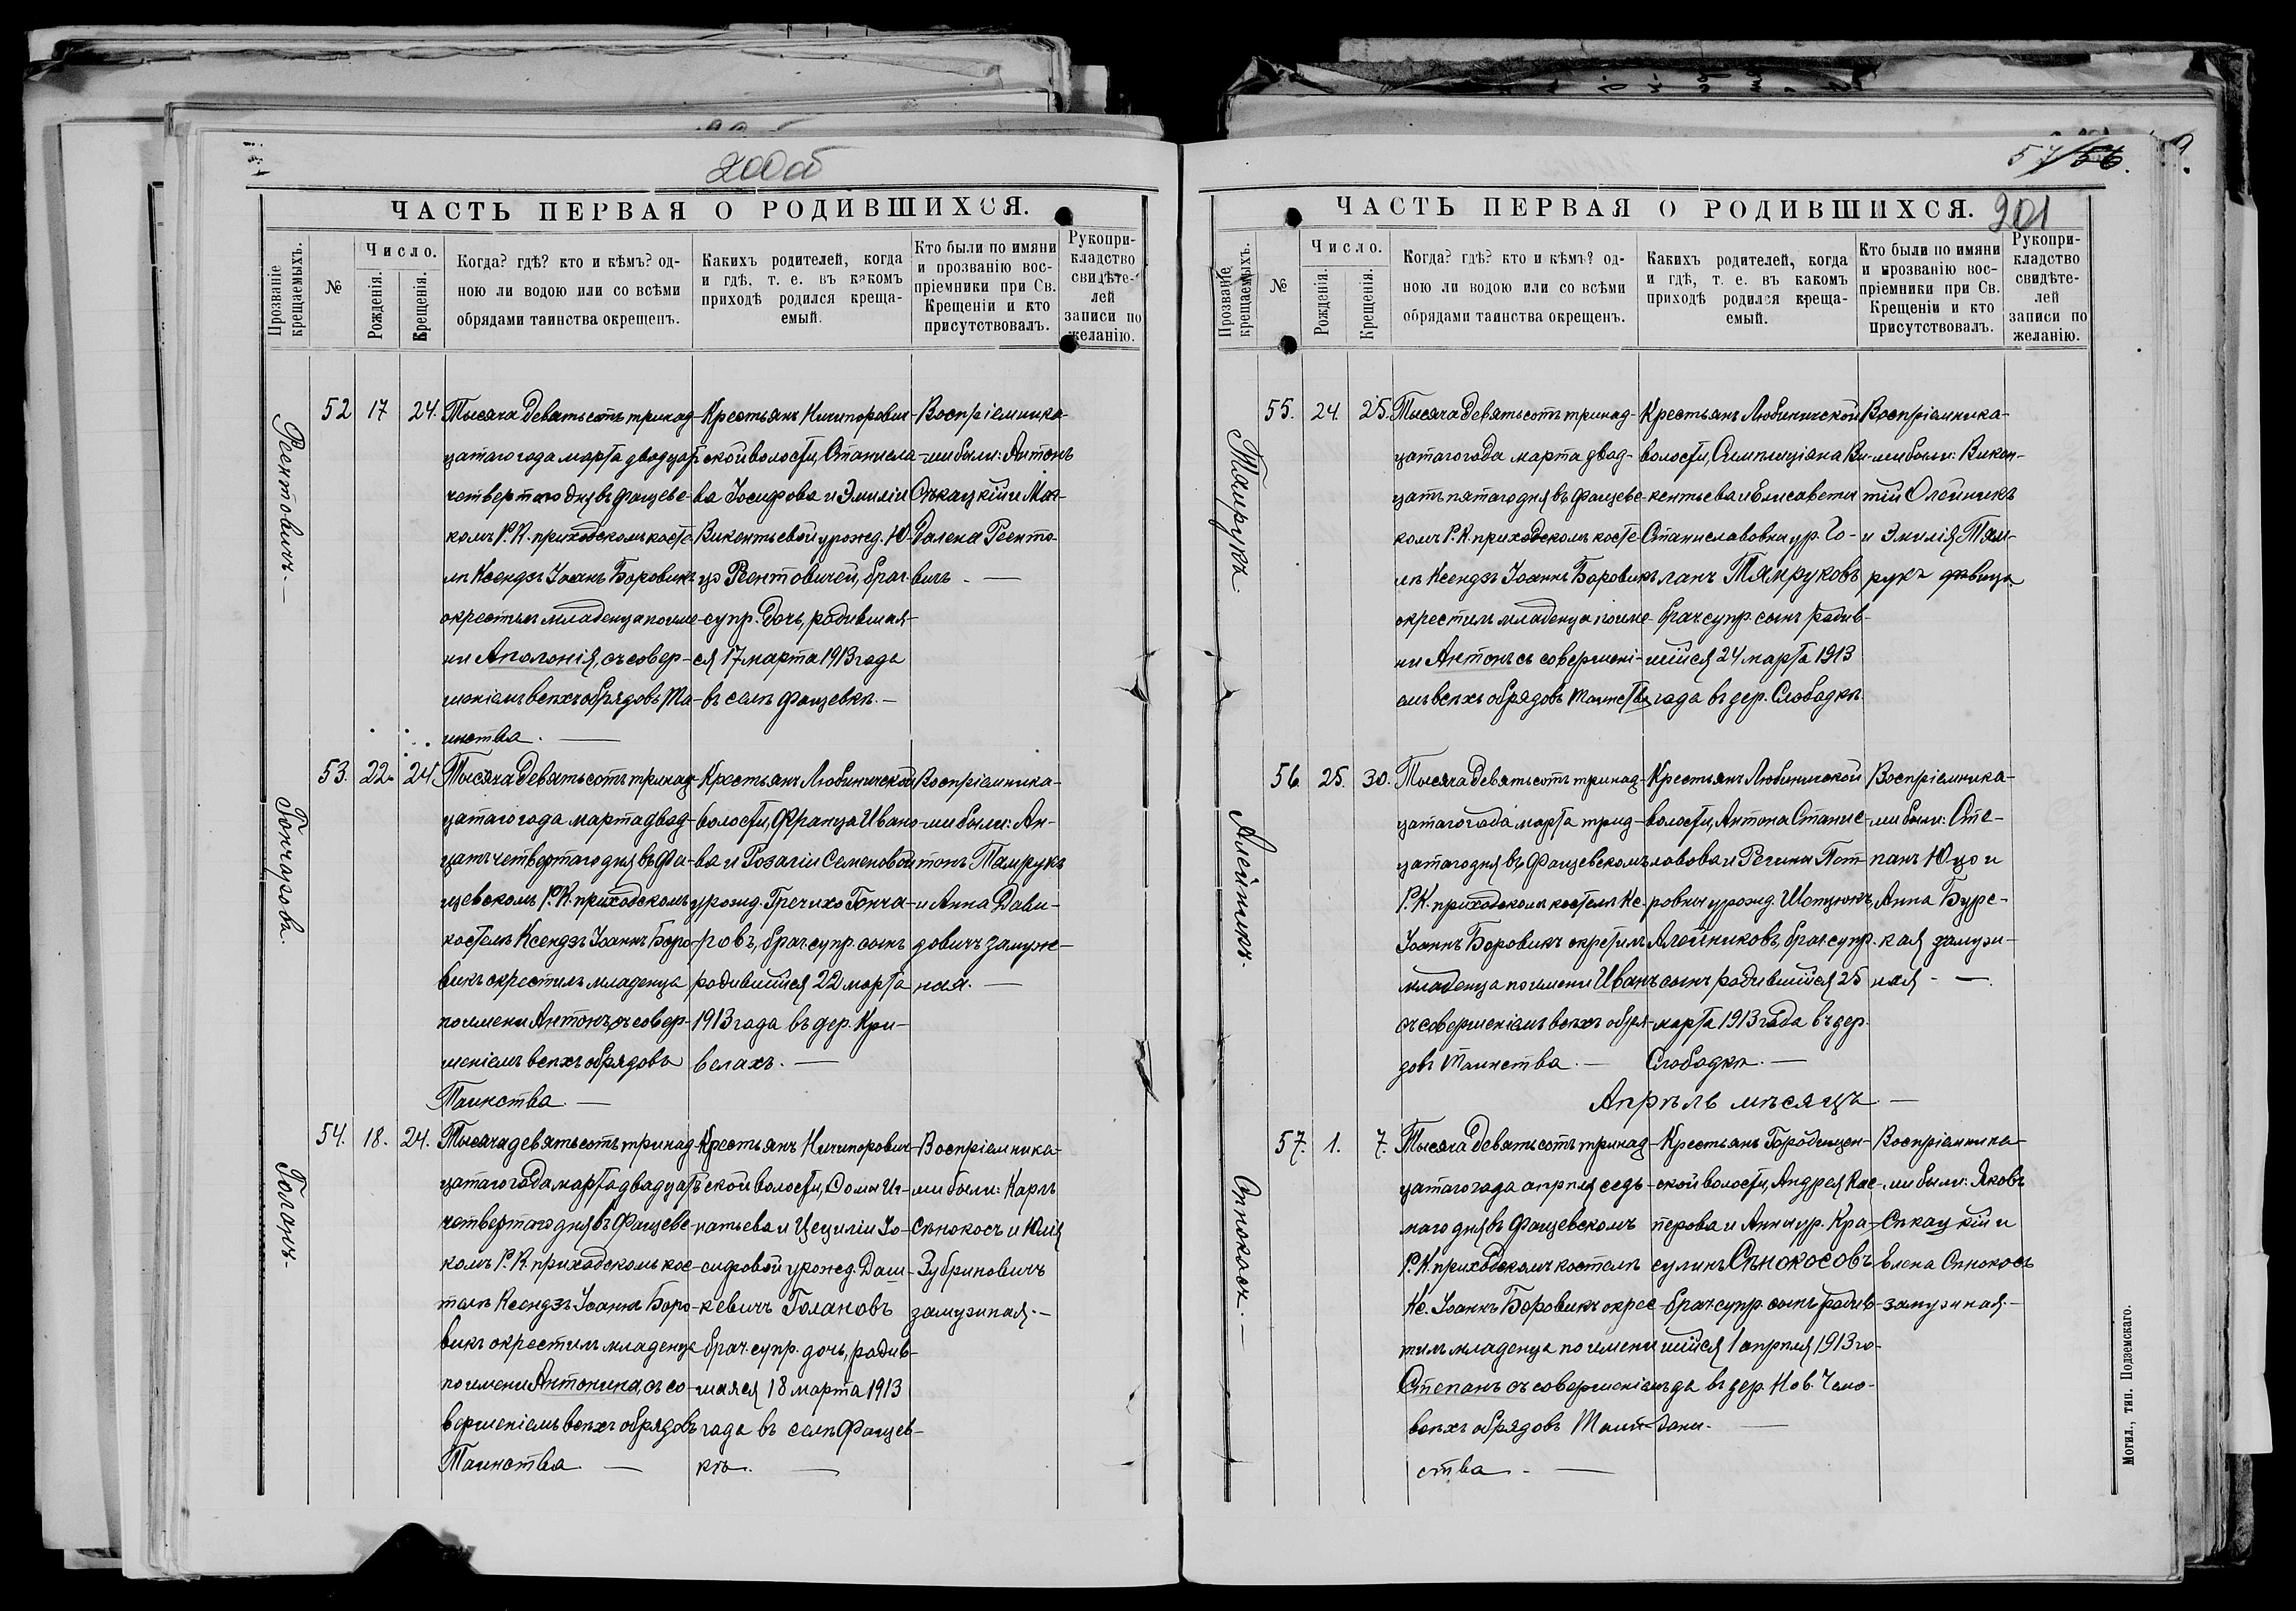 200об
ЧАСТЬ ПЕРВАЯ О РОДИВШИХСЯ.
Прозваніе крещаемыхъ.
№
Число.
Рожденія.
Крещенія.
Когда? гдѣ? кто и кѣмъ? од-
ною ли водою или со всѣми
обрядами таинства окрещенъ.
Какихъ родителей, когда
и гдѣ, т. е. въ какомъ
приходѣ родился креща-
емый.
Кто были по имяни
и прозванію вос-
пріемники при Св.
Крещеніи и кто
присутствовалъ.
Рукопри-
кладство
свидѣте-
лей
записи по
желанію.
Рентовичъ.
52 17 24.
Тысяча девятьсотъ тринад-
цатаго года марта двадцать
четвертаго дня въ Фащевс-
комъ Р. К. приходскомъ косте-
лѣ Ксендзъ Іоанъ Боровикъ
окрестилъ младенца по име-
ни Аполонія, съ совер-
шеніемъ всѣхъ обрядовъ Та-
инства.
Крестьянъ Ничипорович-
ской волости, Станисла-
ва Іосифова и Эмиліи
Викентьевой урожд. Ю-
цо Рентовичей, брач.
супр. дочь, родившая-
ся 17 марта 1913 года
въ селѣ Фащевкѣ.
Воспріемника-
ми были: Антонъ
Сѣкацкій и Маг-
далена Реенто-
вичъ.
Гончарова.
53. 22. 24.
Тысяча девятьсотъ тринад-
цатаго года марта двад-
цать четвертаго дня въ Фа-
щевскомъ Р. К. приходскомъ
костелѣ Ксендзъ Іоаннъ Боро-
викъ окрестилъ младенца
по имени Антонъ, съ совер-
шеніемъ всѣхъ обрядовъ
Таинства.
Крестьянъ Любиничской
волости, Франца Ивано-
ва и Розаліи Семеновой
урожд. Гречихо Гонча-
ровъ, брач. супр. сынъ
родившійся 22 марта
1913 года въ дер. Кри-
велахъ.
Воспріемника-
ми были: Ан-
тонъ Тамрукъ
и Анна Дави-
довичъ замуж-
ная.
Голанъ.
54. 18. 24.
Тысяча девятьсотъ тринад-
цатаго года марта двадцать
четвертаго дня въ Фащевс-
комъ Р. К. приходскомъ кос-
телѣ Ксендзъ Іоаннъ Боро-
викъ окрестилъ младенца
по имени Антонина, съ со-
вершеніемъ всѣхъ обрядовъ
Таинства.
Крестьянъ Ничипорович-
ской волости, Фомы Иг-
натьева и Цециліи Іо-
сифовой урожд. Даш-
кевичъ Голановъ
брач. супр. дочь, родив-
шаяся 18 марта 1913
года въ селѣ Фащев-
кѣ.
Воспріемника-
ми были: Карлъ
Сѣнокосъ и Юлія
Зубриновичъ
замужная.
57/56.
201
ЧАСТЬ ПЕРВАЯ О РОДИВШИХСЯ.
Прозваніе крещаемыхъ.
№
Число.
Рожденія.
Крещенія.
Когда? гдѣ? кто и кѣмъ? од-
ною ли водою или со всѣми
обрядами таинства окрещенъ.
Какихъ родителей, когда
и гдѣ, т. е. въ какомъ
приходѣ родился креща-
емый.
Кто были по имяни
и прозванію вос-
пріемники при Св.
Крещеніи и кто
присутствовалъ.
Рукопри-
кладство
свидѣте-
лей
записи по
желанію.
Тамрукъ
55. 24. 25.
Тысяча девятьсотъ тринад-
цатаго года марта двад-
цать пятаго дня въ Фащевс-
комъ Р. К. приходскомъ косте-
лѣ Ксендзъ Іоаннъ Боровикъ
окрестилъ младенца по име-
ни Антонъ съ совершені-
емъ всѣхъ обрядовъ Таинства
Крестьянъ Любиничской
волости, Симплиціана Ви-
кентьева и Елисаветы
Станиславовны ур. Го-
ланъ Тамруковъ
брач. супр. сынъ родив-
шійся 24 марта 1913
года въ дер. Слободкѣ.
Воспріемника-
ми были: Викен-
тій Олейникъ
и Эмилія Там-
рукъ дѣвица
Алейникъ.
56. 25. 30.
Тысяча девятьсотъ тринад-
цатаго года марта трид-
цатаго дня въ Фащевскомъ
Р. К. приходскомъ костелѣ Кс.
Іоаннъ Боровикъ окрестилъ
младенца по имени Иванъ
съ совершеніемъ всѣхъ обря-
довъ Таинства.
Крестьянъ Любиничской
волости, Антона Станис-
лавова и Регины Пет-
ровны урожд. Шотцюкъ,
Алейниковъ, брач. супр.
сынъ родившійся 25
марта 1913 года въ дер.
Слободкѣ.
Воспріемника-
ми были: Сте-
панъ Юцо и
Анна Бурс-
кая замуж-
ная.
Апрѣль мѣсяцъ
Сѣнокосъ.
57. 1. 7.
Тысяча девятьсотъ тринад-
цатаго года апрѣля седь-
маго дня въ Фащевскомъ
Р. К. приходскомъ костелѣ
Кс. Іоаннъ Боровикъ окрес-
тилъ младенца по имени
Степанъ съ совершеніемъ
всѣхъ обрядовъ Таин-
ства.
Крестьянъ Городищен-
ской волости, Андрея Кас-
перова и Анны ур. Кра-
сулинъ Сѣнокосовъ
брач. супр. сынъ родив-
шійся 1 апрѣля 1913 го-
да въ дер. Нов. Чемо-
даны.
Воспріемника-
ми были: Яковъ
Сѣкацкій и
Елена Сѣнокосъ
замужная.
Могил., тип. Подземскаго.